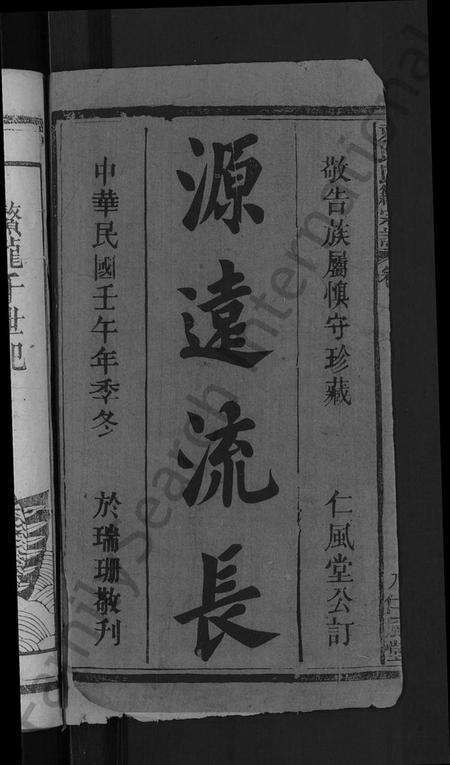 敬告族屬慎守珍藏 仁風堂公訂
源遠流長
中華民國壬午年季冬 於瑞珊敬刊
FamilySearch International